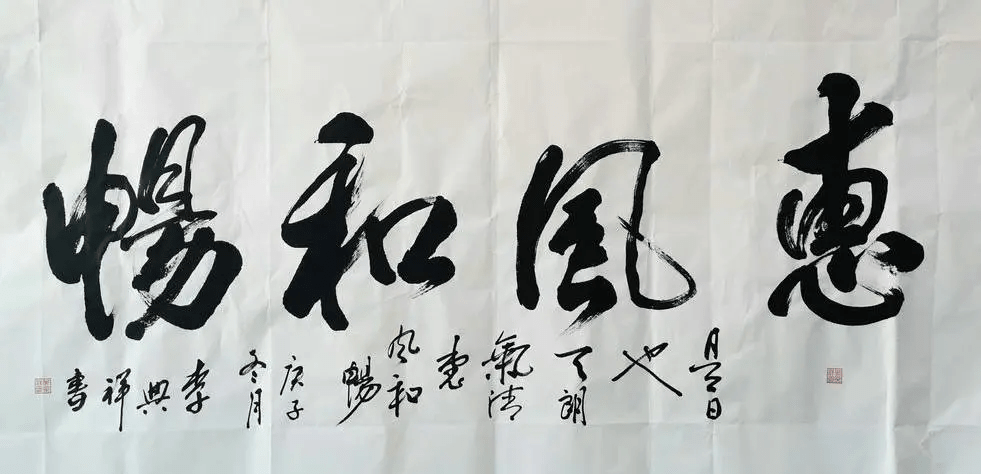 惠風和暢
是日也天朗氣清惠風和暢庚子冬月李興祥書